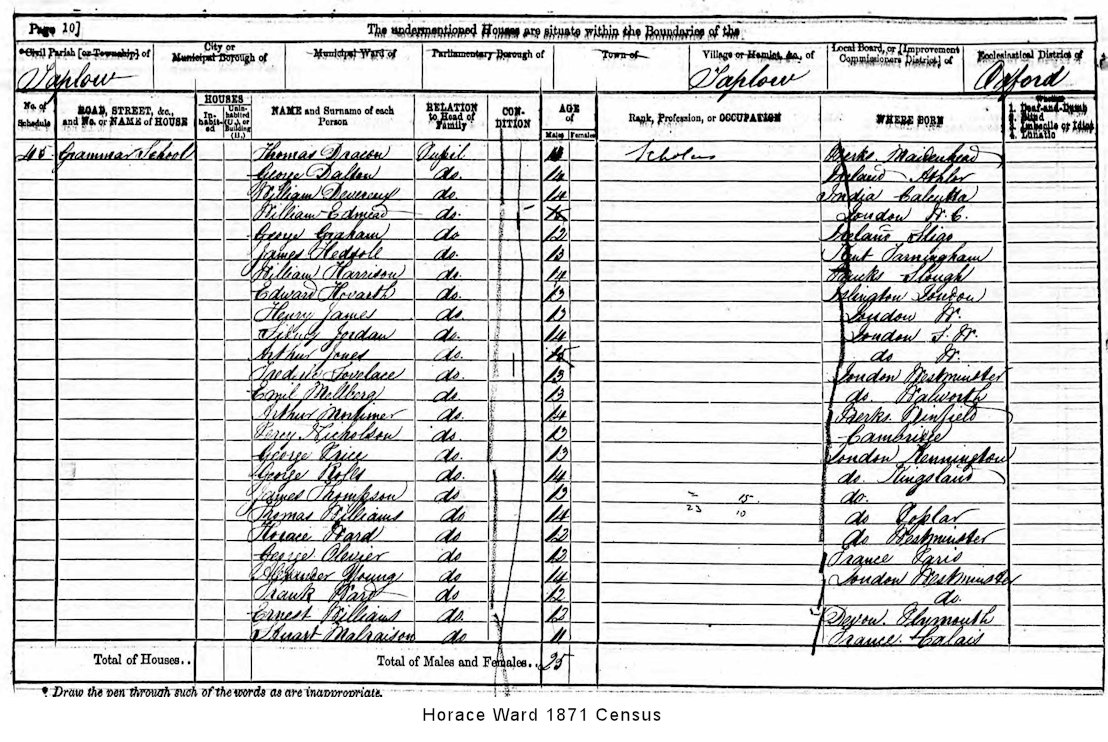 Page 10] The undermentioned Houses are situate within the Boundaries of the
Civil Parish [or Township] of City or Municipal Borough of Municipal Ward of Parliamentary Borough of Town of Village or Hamlet, &c., of Local Board, or [Improvement Commissioners District] of Ecclesiastical District of
Taplow Taplow Oxford
No. of Schedule ROAD, STREET, &c., and No. or NAME of HOUSE HOUSES In-habited Unin-habited (U.), or Building (B.) NAME and Surname of each Person RELATION to Head of Family CON-DITION AGE of Males Females Rank, Profession, or OCCUPATION WHERE BORN Whether 1. Deaf-and-Dumb 2. Blind 3. Imbecile or Idiot 4. Lunatic
45 Grammar School Thomas Deacon Pupil Scholar Berks. Maidenhead
George Dalton do. 14 Ireland
William do. 14 India Calcutta
William Edmead do. London W.C.
George Graham do 12 Ireland Sligo
James do. 13 Kent Farningham
William Harrison do. 14 Bucks Slough
Edward do. 13 Islington London
Henry James do. 13 London W.
Sidney Jordan do. 14 London S.W.
Arthur Jones do. 15 do W.
Lovelace do. 13 London Westminster
Emil Mellberg do. 13 do. Walworth
Arthur Mortimer do. 14 Berks Winfield
Percy Nicholson do. 13
George Price do. 13 London Kennington
George do. 14 do. Kingsland
James Thompson do 13 23 15 10 do.
Thomas Williams do 14 do Poplar
Horace Ward do 12 do Westminster
George Olivier do 12 France Paris
Alexander Young do 14 London Westminster
Frank Ward do 12 do.
Ernest Williams do. 12 Devon. Plymouth
Stuart Malraison do 11 France. Calais
Total of Houses.. Total of Males and Females.. 25
* Draw the pen through such of the words as are inappropriate.
Horace Ward 1871 Census